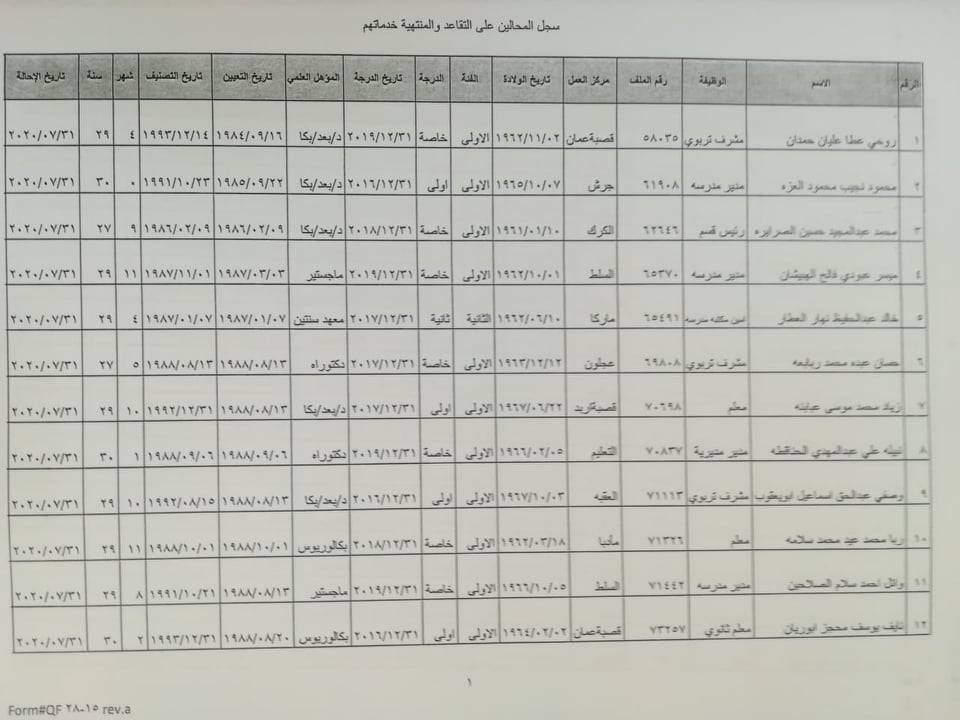 سجل المحالين على التقاعد والمنتهية خدماتهم
الرقم الاسم الوظيفة رقم الملف مركز العمل تاريخ الولادة الفئة الدرجة تاريخ الدرجة المؤهل العلمي تاريخ التعيين تاريخ التصنيف شهر سنة تاريخ الإحالة
١ روحي عطا عليان حمدان مشرف تربوي ٥٨٠٣٥ قصبةعمان ١٩٦٢/١١/٠٢ الاولى خاصة ٢٠١٩/١٢/٣١ د/بعد/بكا ١٩٨٤/٠٩/١٦ ١٩٩٣/١٢/١٤ ٤ ٢٩ ٢٠٢٠/٠٧/٣١
٢ محمود نجيب محمود العزه مدير مدرسه ٦١٩٠٨ جرش ١٩٦٥/١٠/٠٧ الاولى اولى ٢٠١٦/١٢/٣١ د/بعد/بكا ١٩٨٥/٠٩/٢٢ ١٩٩١/١٠/٢٣ ٠ ٣٠ ٢٠٢٠/٠٧/٣١
٣ محمد عبدالمجيد حسين الصرايره رئيس قسم ٦٢٦٤٦ الكرك ١٩٦١/٠١/١٠ الاولى خاصة ٢٠١٨/١٢/٣١ د/بعد/بكا ١٩٨٦/٠٢/٠٩ ١٩٨٦/٠٢/٠٩ ٩ ٢٧ ٢٠٢٠/٠٧/٣١
٤ ميسر عبودي فالح الهبيشان مدير مدرسه ٦٥٣٧٠ السلط ١٩٦٢/١٠/٠١ الاولى خاصة ٢٠١٩/١٢/٣١ ماجستير ١٩٨٧/٠٣/٠٣ ١٩٨٧/١١/٠١ ١١ ٢٩ ٢٠٢٠/٠٧/٣١
٥ خالد عبدالحفيظ نهار العطار امين مكتبه مدرسه ٦٥٤٩١ ماركا ١٩٦٢/٠٦/١٠ الثانية ثانية ٢٠١٧/١٢/٣١ معهد سنتين ١٩٨٧/٠١/٠٧ ١٩٨٧/٠١/٠٧ ٤ ٢٩ ٢٠٢٠/٠٧/٣١
٦ حسان عبده محمد ربابعه مشرف تربوي ٦٩٨٠٨ عجلون ١٩٦٣/١٢/١٢ الاولى خاصة ٢٠١٧/١٢/٣١ دكتوراه ١٩٨٨/٠٨/١٣ ١٩٨٨/٠٨/١٣ ٥ ٢٧ ٢٠٢٠/٠٧/٣١
٧ زياد محمد موسى عبابنه معلم ٧٠٦٩٨ قصبةاربد ١٩٦٧/٠٦/٢٢ الاولى اولى ٢٠١٧/١٢/٣١ د/بعد/بكا ١٩٨٨/٠٨/١٣ ١٩٩٢/١٢/٣١ ١٠ ٢٩ ٢٠٢٠/٠٧/٣١
٨ نبيله علي عبدالمهدي الحناقطه مدير مديرية ٧٠٨٣٧ التعليم ١٩٦٦/٠٢/٠٥ الاولى خاصة ٢٠١٩/١٢/٣١ دكتوراه ١٩٨٨/٠٩/٠٦ ١٩٨٨/٠٩/٠٦ ١ ٣٠ ٢٠٢٠/٠٧/٣١
٩ وصفي عبدالحق اسماعيل ابويعقوب مشرف تربوي ٧١١١٣ العقبه ١٩٦٧/١٠/٠٣ الاولى اولى ٢٠١٦/١٢/٣١ د/بعد/بكا ١٩٨٨/٠٨/١٣ ١٩٩٢/٠٨/١٥ ١٠ ٢٩ ٢٠٢٠/٠٧/٣١
١٠ ربا محمد عيد محمد سلامه معلم ٧١٣٢٦ مأدبا ١٩٦٢/٠٣/١٨ الاولى خاصة ٢٠١٨/١٢/٣١ بكالوريوس ١٩٨٨/١٠/٠١ ١٩٨٨/١٠/٠١ ١١ ٢٩ ٢٠٢٠/٠٧/٣١
١١ وائل احمد سلام الصلاحين مدير مدرسه ٧١٤٤٢ السلط ١٩٦٦/١٠/٠٥ الاولى خاصة ٢٠١٩/١٢/٣١ ماجستير ١٩٨٨/٠٨/١٣ ١٩٩١/١٠/٢١ ٨ ٢٩ ٢٠٢٠/٠٧/٣١
١٢ نايف يوسف محجز ابوريان معلم ثانوي ٧٣٢٥٧ قصبةعمان ١٩٦٤/٠٢/٠٢ الاولى اولى ٢٠١٦/١٢/٣١ بكالوريوس ١٩٨٨/٠٨/٢٠ ١٩٩٣/١٢/٣١ ٢ ٣٠ ٢٠٢٠/٠٧/٣١
١
Form#QF ٢٨-١٥ rev.a